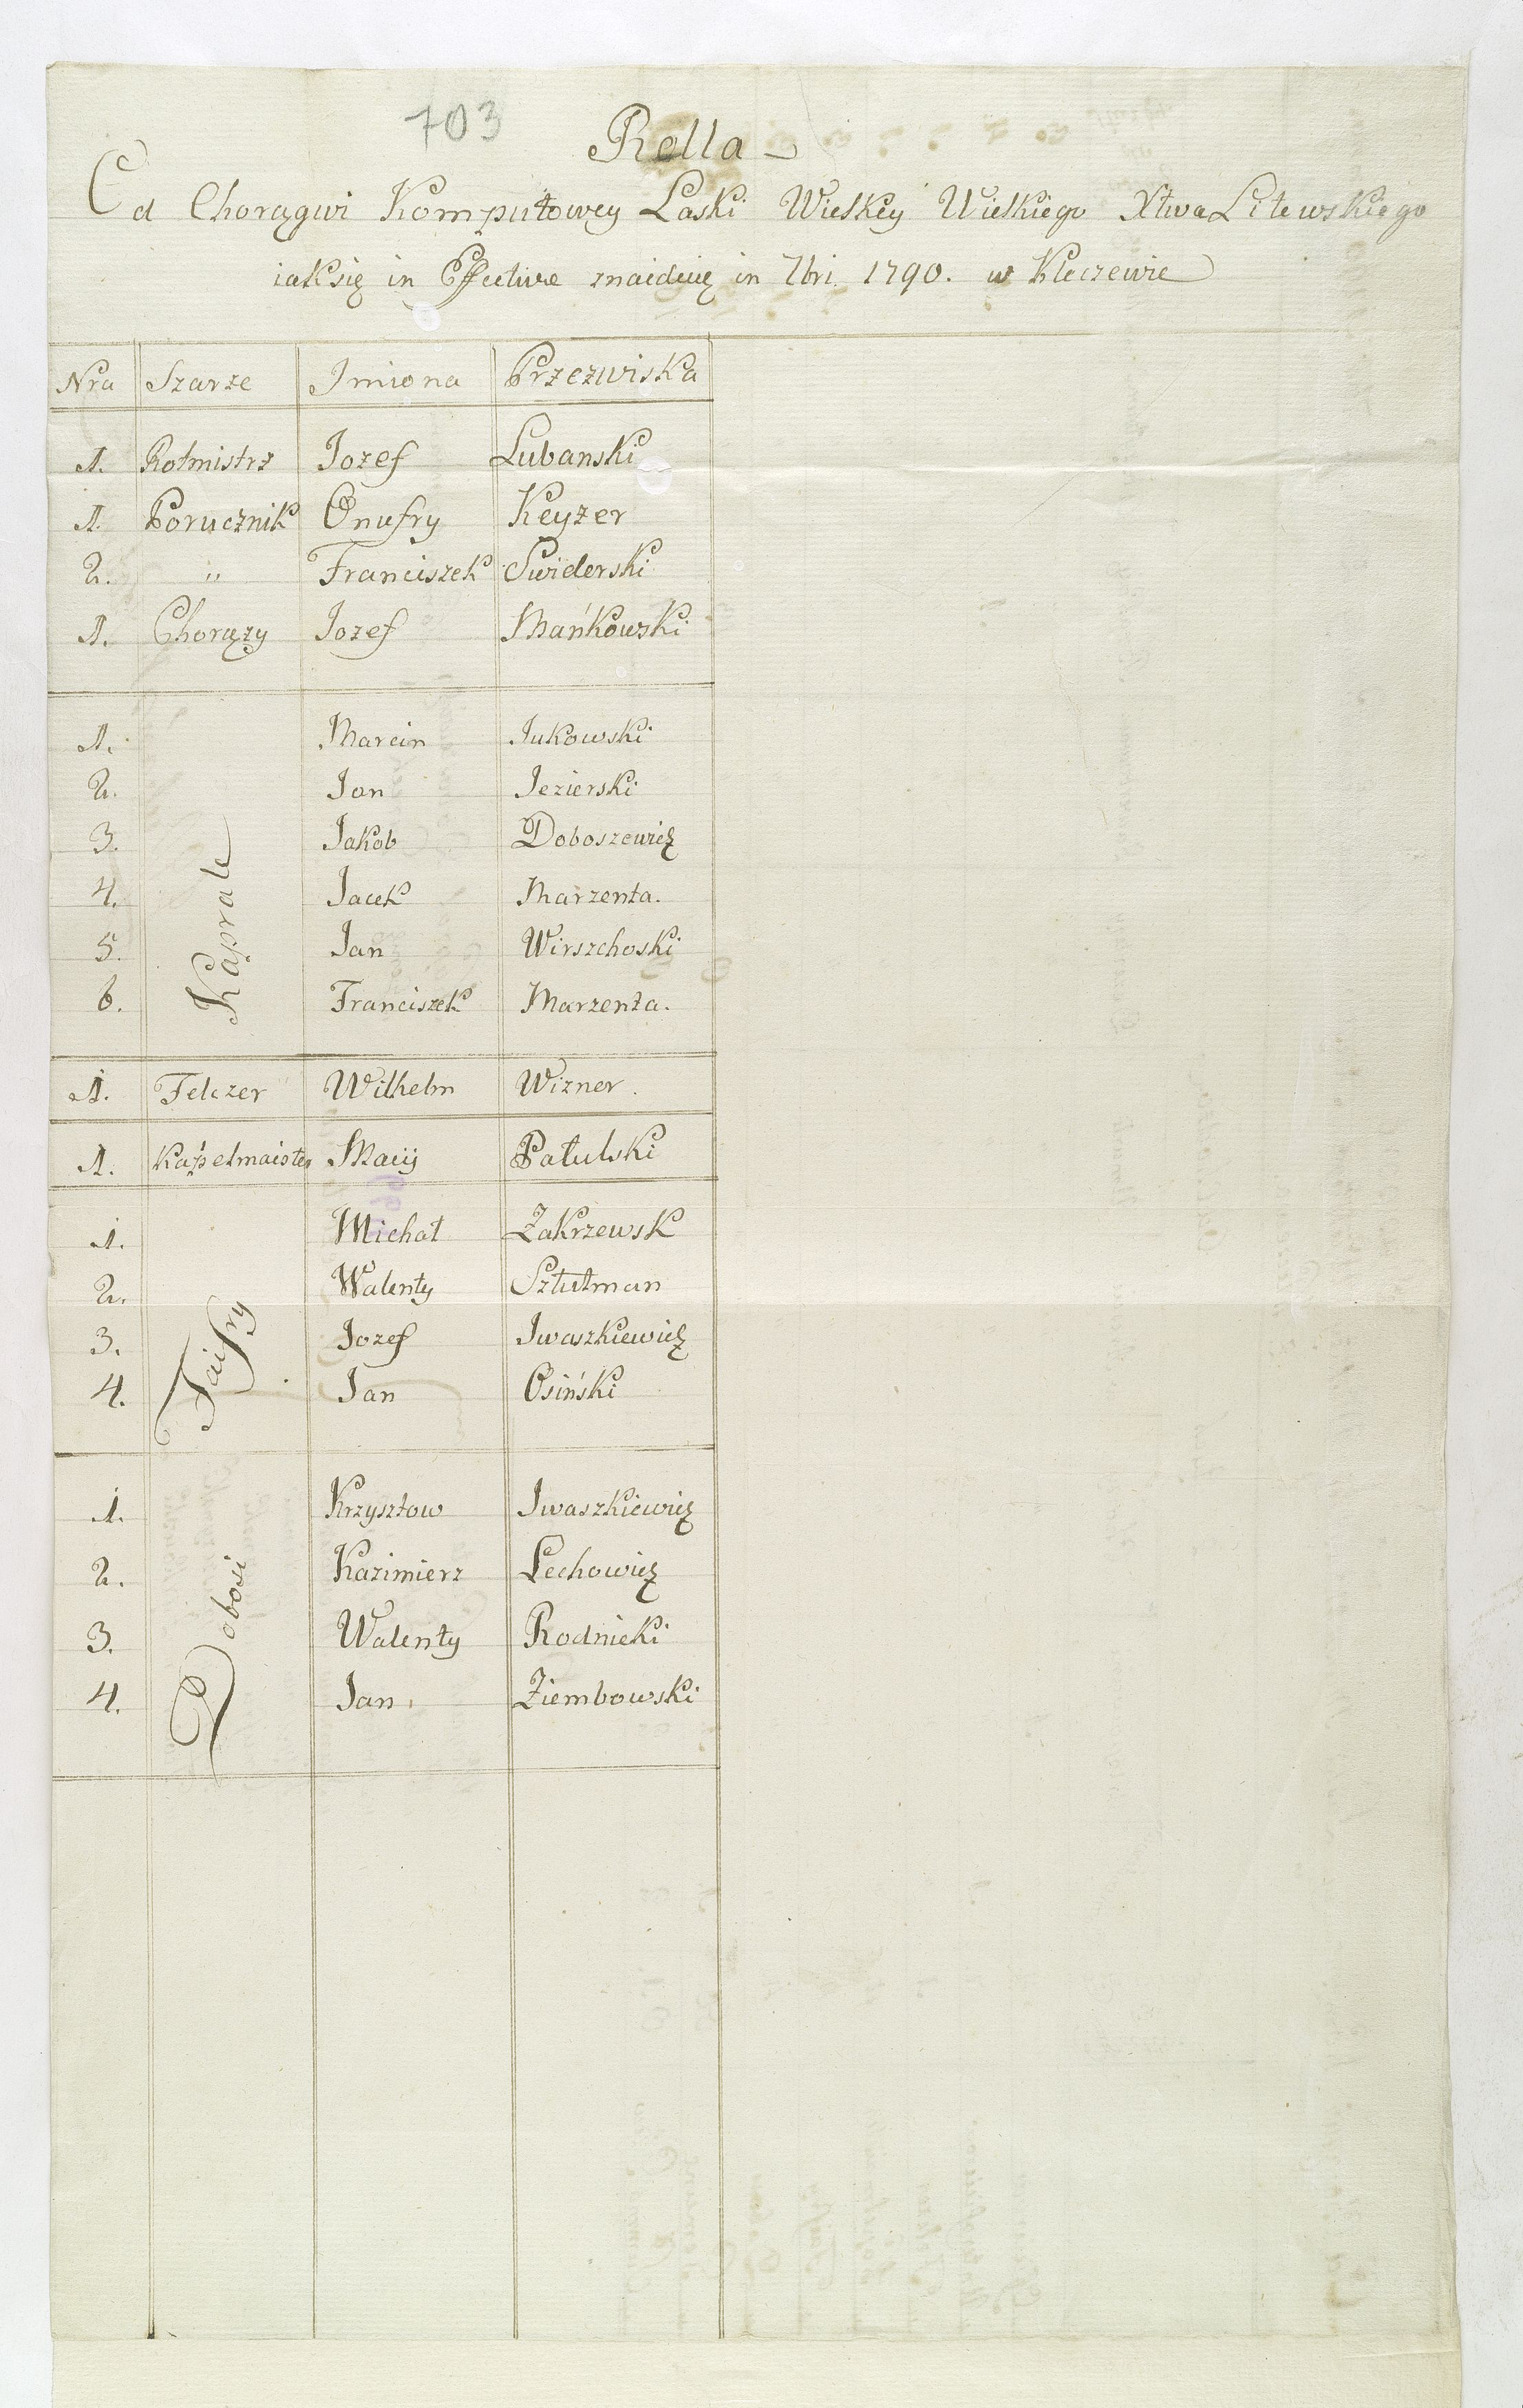 703
Rolla
Od Chorągwi Komputowey Laski Wielkey Wielkiego Xtwa Litewskiego
iak się in Effective znaiduię in 7bri 1790. w Kleczewie
Nra Szarże Imiona Przezwiska
1. Rotmistrz Iozef Lubanski
1. Porucznik Onufry Keyzer
2. " Franciszek Swiderski
1. Chorązy Iozef Mańkowski
Kaprale
1. Marcin Iukowski
2. Ian Iezierski
3. Iakob Doboszewicz
4. Iacek Marzenta.
5. Ian Wirszchoski
6. Franciszek Marzenta.
1. Felczer Wilhelm Wizner.
1. Kapelmaister Maciy Patulski
Faifry
1. Michał Zakrzewsk
2. Walenty Sztutman
3. Iozef Iwaszkiewicz
4. Ian Osiński
Dobosi
1. Krzysztow Iwaszkiewicz
2. Kazimierz Lechowicz
3. Walenty Rodnicki
4. Ian Ziembowski